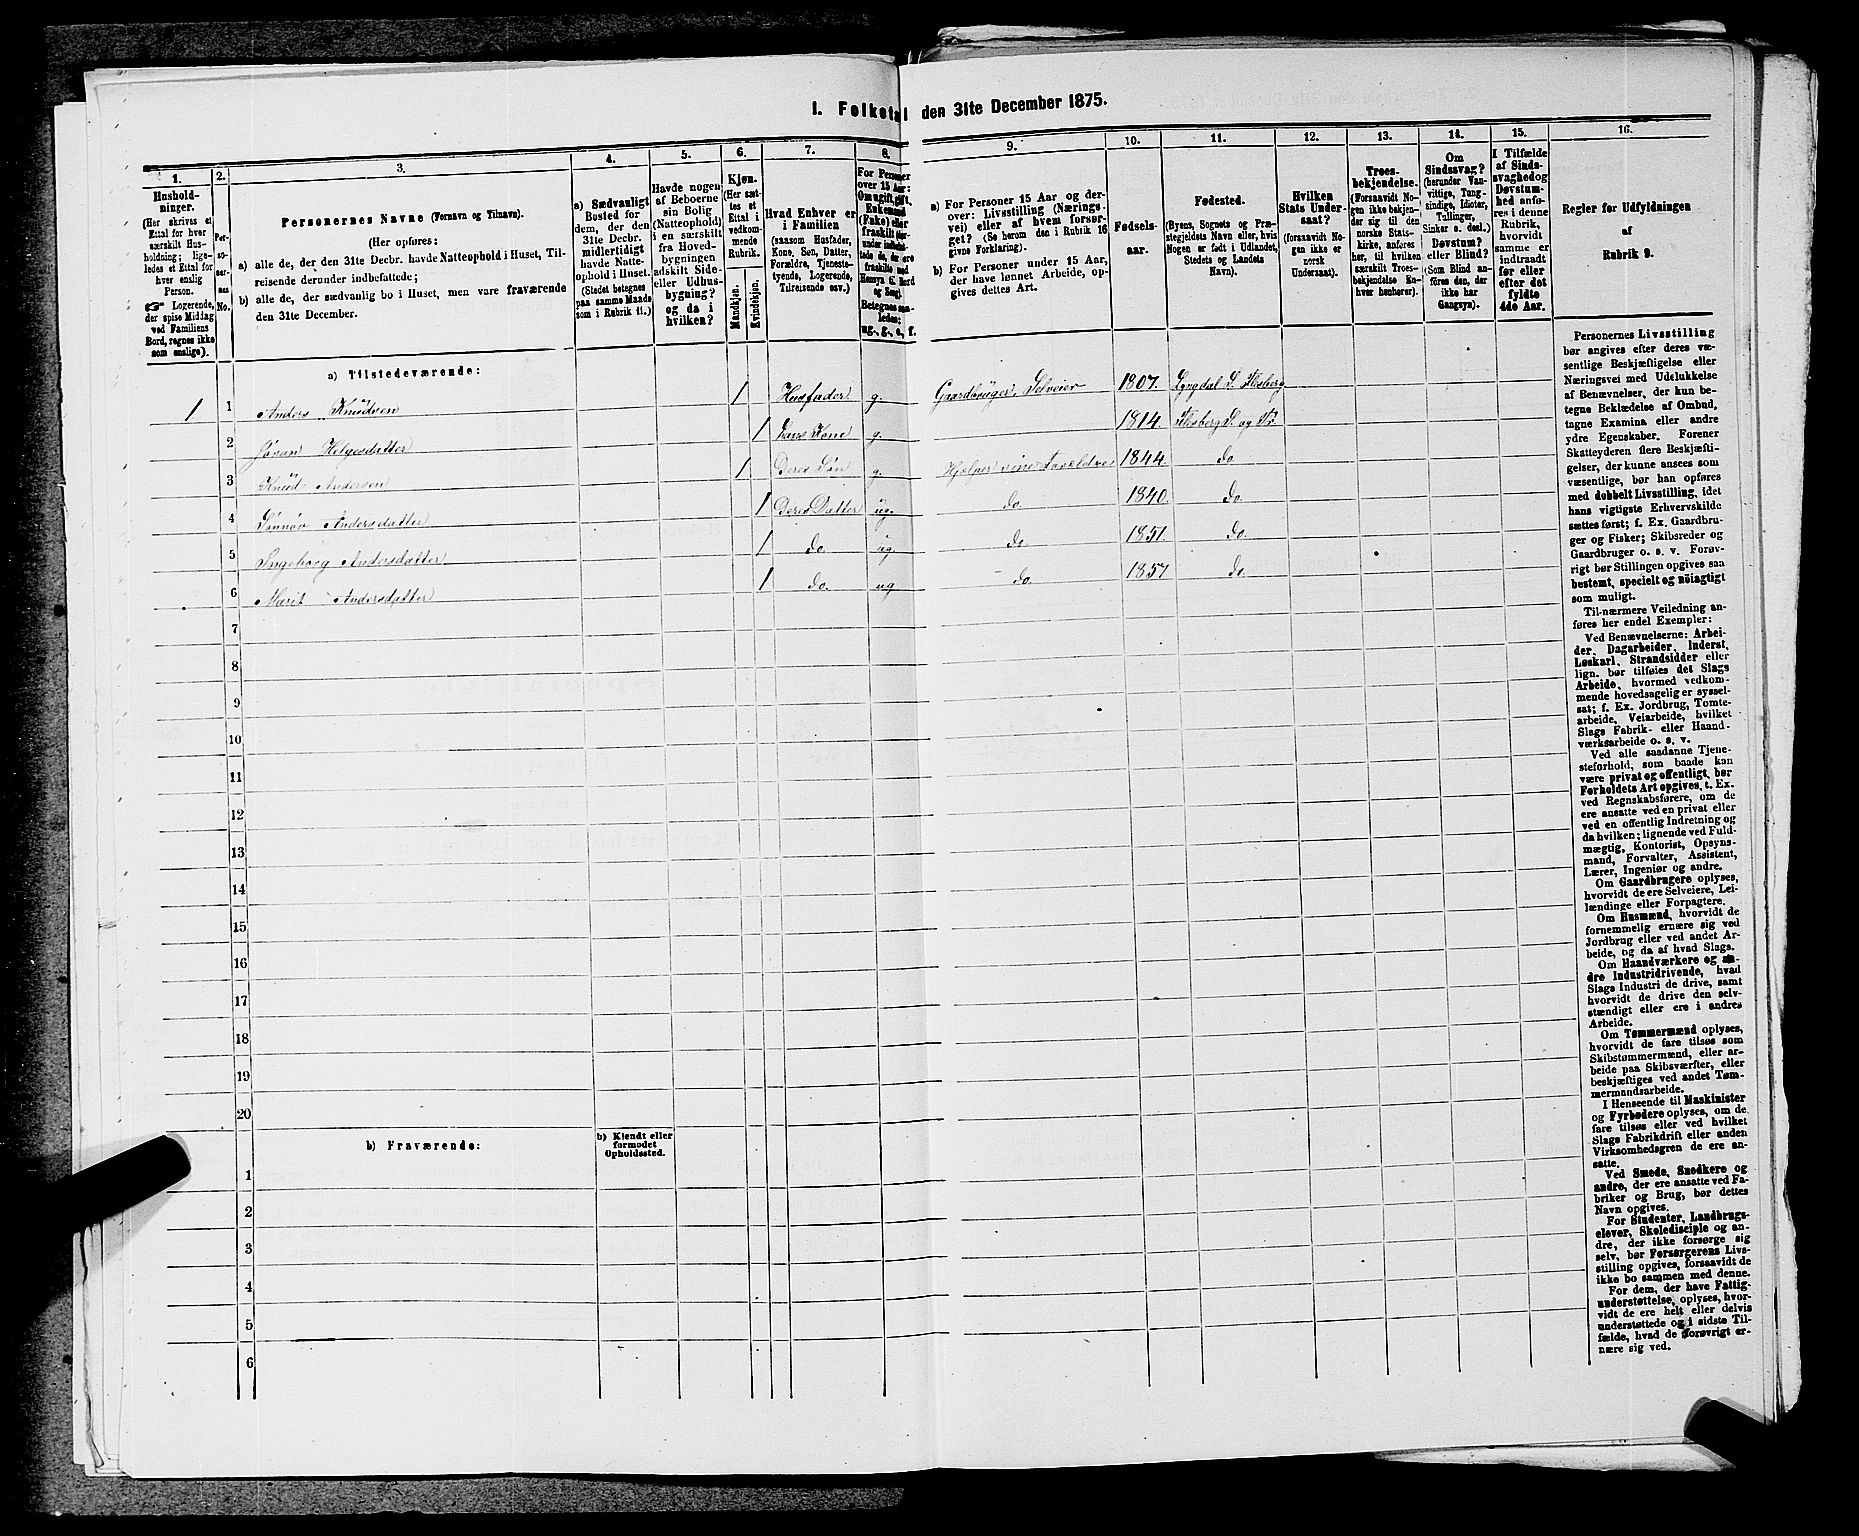 1. Folketal den 31te December 1875.
1.
Hushold-
ninger.
(Her skrives et
Ettal for hver
særskilt Hus-
holdning; lige-
ledes et Ettal for
hver enslig
Person.
Logerende,
der spise Middag
ved Familiens
Bord, regnes ikke
som enslige).
2.
Per-
so-
ner-
nes
No.
3.
Personernes Navne (Fornavn og Tilnavn).
(Her opføres:
a) alle de, der den 31te Decbr. havde Natteophold i Huset, Til-
reisende derunder indbefattede;
b) alle de, der sædvanlig bo i Huset, men vare fraværende
den 31te December.
4.
a) Sædvanligt
Bosted for
dem, der den
31te Decbr.
midlertidigt
havde Natte-
ophold i Huset.
(Stedet betegnes
paa samme Maade
som i Rubrik 11.)
5.
Havde nogen
af Beboerne
sin Bolig
(Natteophold)
i en særskilt
fra Hoved-
bygningen
adskilt Side-
eller Udhus-
bygning?
og da i
hvilken?
6.
Kjøn.
(Her sæt-
tes et
Ettal i
vedkom-
mende
Rubrik.
Mandkjøn.
Kvindekjøn.
7.
Hvad Enhver er
i Familien
(saasom Husfader,
Kone, Søn, Datter,
Forældre, Tjeneste-
tyende, Logerende,
Tilreisende osv.)
8.
For Personer
over 15 Aar:
Om ugift, gift,
Enkemand
(Enke) eller
fraskilt
ug., g., e., f.
9.
a) For Personer 15 Aar og der-
over: Livsstilling (Nærings-
vei) eller af hvem forsør-
get? (Se herom den i Rubrik 16
givne Forklaring).
b) For Personer under 15 Aar,
der have lønnet Arbeide, op-
gives dettes Art.
10.
Fødsels-
aar.
11.
Fødested.
(Byens, Sognets og Præ-
stegjeldets Navn eller, hvis
Nogen er født i Udlandet,
Stedets og Landets
Navn).
12.
Hvilken
Stats Under-
saat?
(forsaavidt No-
gen ikke er
norsk
Undersaat).
13.
Troes-
bekjendelse.
(Forsaavidt No-
gen ikke bekjen-
der sig til den
norske Stats-
kirke, anføres
her, til hvilken
særskilt Troes-
bekjendelse En-
hver henhører).
14.
Om
Sindssvag?
(herunder Van-
vittige, Tung-
sindige, Idioter,
Tullinger,
Sinker o. desl.)
Døvstum?
eller Blind?
(Som Blind an-
føres den, der
ikke har
Gangsyn).
15.
I Tilfælde
af Sinds-
svaghed og
Døvstum-
hed anfø-
res i denne
Rubrik,
hvorvidt
samme er
indtraadt
før eller
efter det
fyldte
4de Aar.
16.
Regler for Udfyldningen
af
Rubrik 9.
a) Tilstedeværende:
1 1 Anders Knudsen 1 Husfader g. Gaardbruger, Selveier 1807. Lyngdal S. Flesberg
2 Jøran Helgesdatter 1 Hans Kone g. 1814. Flesberg S. og Pr.
3 Knud Andersen 1 Deres Søn g. Hjelper sine Forældre 1844. do
4 Sønnøv Andersdatter 1 Deres Datter ug. do. 1840. do
5 Ingeborg Andersdatter 1 do. ug. do. 1851. do.
6 Marit Andersdatter 1 do. ug do. 1857 do.
7
8
9
10
11
12
13
14
15
16
17
18
19
20
b) Fraværende:
b) Kjendt eller
formodet
Opholdssted.
1
2
3
4
5
6
Personernes Livsstilling
bør angives efter deres væ-
sentlige Beskjæftigelse eller
Næringsvei med Udelukkelse
af Benævnelser, der kun be-
tegne Beklædelse af Ombud,
tagne Examina eller andre
ydre Egenskaber. Forener
Skatteyderen flere Beskjæfti-
gelser, der kunne ansees som
væsentlige, bør han opføres
med dobbelt Livsstilling, idet
hans vigtigste Erhvervskilde
sættes først; f. Ex. Gaardbru-
ger og Fisker; Skibsreder og
Gaardbruger o. s. v. Forøv-
rigt bør Stillingen opgives saa
bestemt, specielt og nöiagtigt
som muligt.
Til nærmere Veiledning an-
føres her endel Exempler:
Ved Benævnelserne: Arbei-
der, Dagarbeider, Inderst,
Løskarl, Strandsidder eller
lign. bør tilføies det Slags
Arbeide, hvormed vedkom-
mende hovedsagelig er syssel-
sat; f. Ex. Jordbrug, Tomte-
arbeide, Veiarbeide, hvilket
Slags Fabrik- eller Haand-
værksarbeide o. s. v.
Ved alle saadanne Tjene-
steforhold, som baade kan
være privat og offentligt, bør
Forholdets Art opgives, t. Ex.
ved Regnskabsførere, om de
ere ansatte ved en privat eller
ved en offentlig Indretning og
da hvilken; lignende ved Fuld-
mægtig, Kontorist, Opsyns-
mand, Forvalter, Assistent,
Lærer, Ingeniør og andre.
Om Gaardbrugere oplyses,
hvorvidt de ere Selveiere, Lei-
lændinge eller Forpagtere.
Om Husmænd, hvorvidt de
fornemmelig ernære sig ved
Jordbrug eller ved andet Ar-
beide, og da af hvad Slags.
Om Haandværkere og an-
dre Industridrivende, hvad
Slags Industri de drive, samt
hvorvidt de drive den selv-
stændigt eller ere i andres
Arbeide.
Om Tømmermænd oplyses,
hvorvidt de fare tilsøs som
Skibstømmermænd, eller ar-
beide paa Skibsværfter, eller
beskjæftiges ved andet Tøm-
mermandsarbeide.
I Henseende til Maskinister
og Fyrbødere oplyses, om de
fare tilsøs eller ved hvilket
Slags Fabrikdrift eller anden
Virksomhedsgren de ere an-
satte.
Ved Smede, Snedkere og
andre, der ere ansatte ved Fa-
briker og Brug, bør dettes
Navn opgives.
For Studenter, Landbrugs-
elever, Skoledisciple og an-
dre, der ikke forsørge sig
selv, bør Forsørgerens Livs-
stilling opgives, forsaavidt de
ikke bo sammen med denne.
For dem, der have Fattig-
understøttelse, oplyses, hvor-
vidt de ere helt eller delvis
understøttede og i sidste Til-
fælde, hvad de forøvrigt er-
nære sig ved.